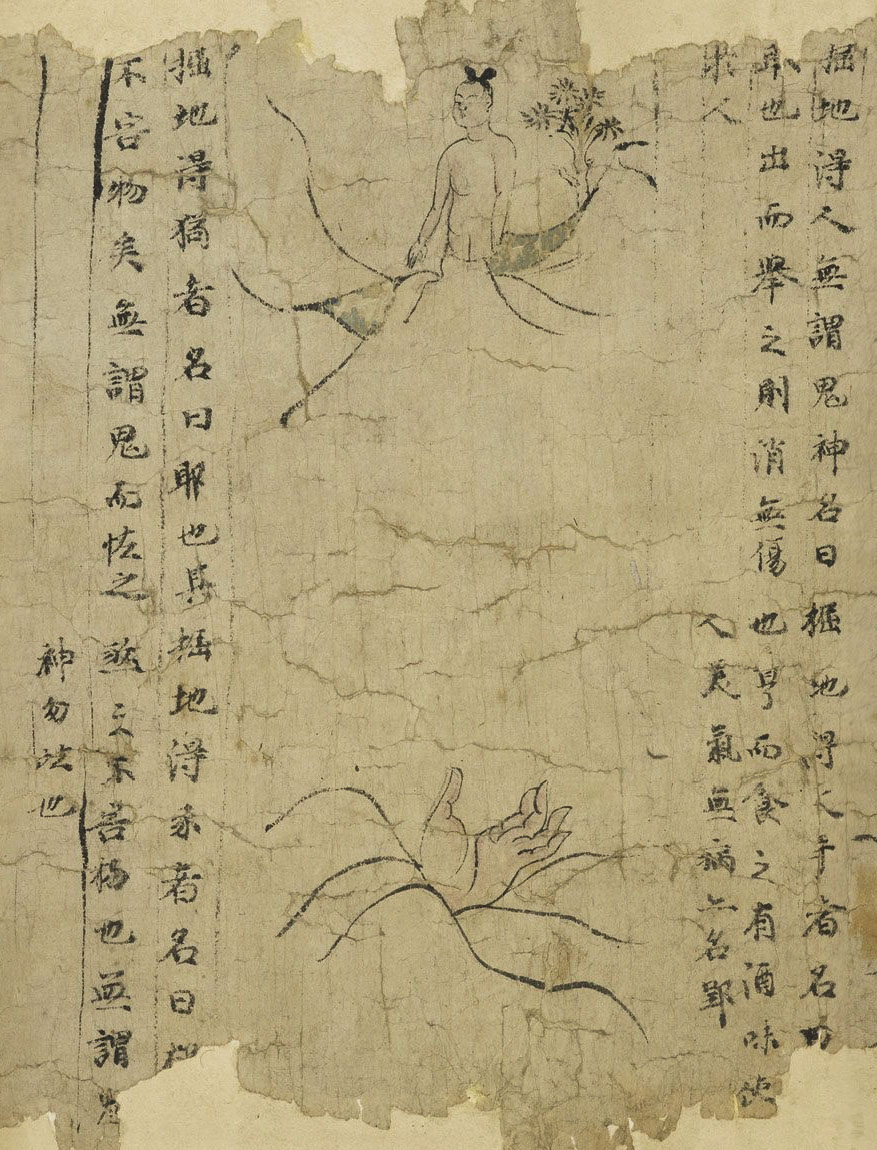 掘地得人無謂鬼神名曰
也出而舉之則消無傷
人
掘地得人手者名
也亨而食之有酒味
人美氣無病一名
掘地得者名曰耶也其
不害物矣無謂鬼而恠之
掘地得豕者名曰
然之不害也無謂
神勿恠也